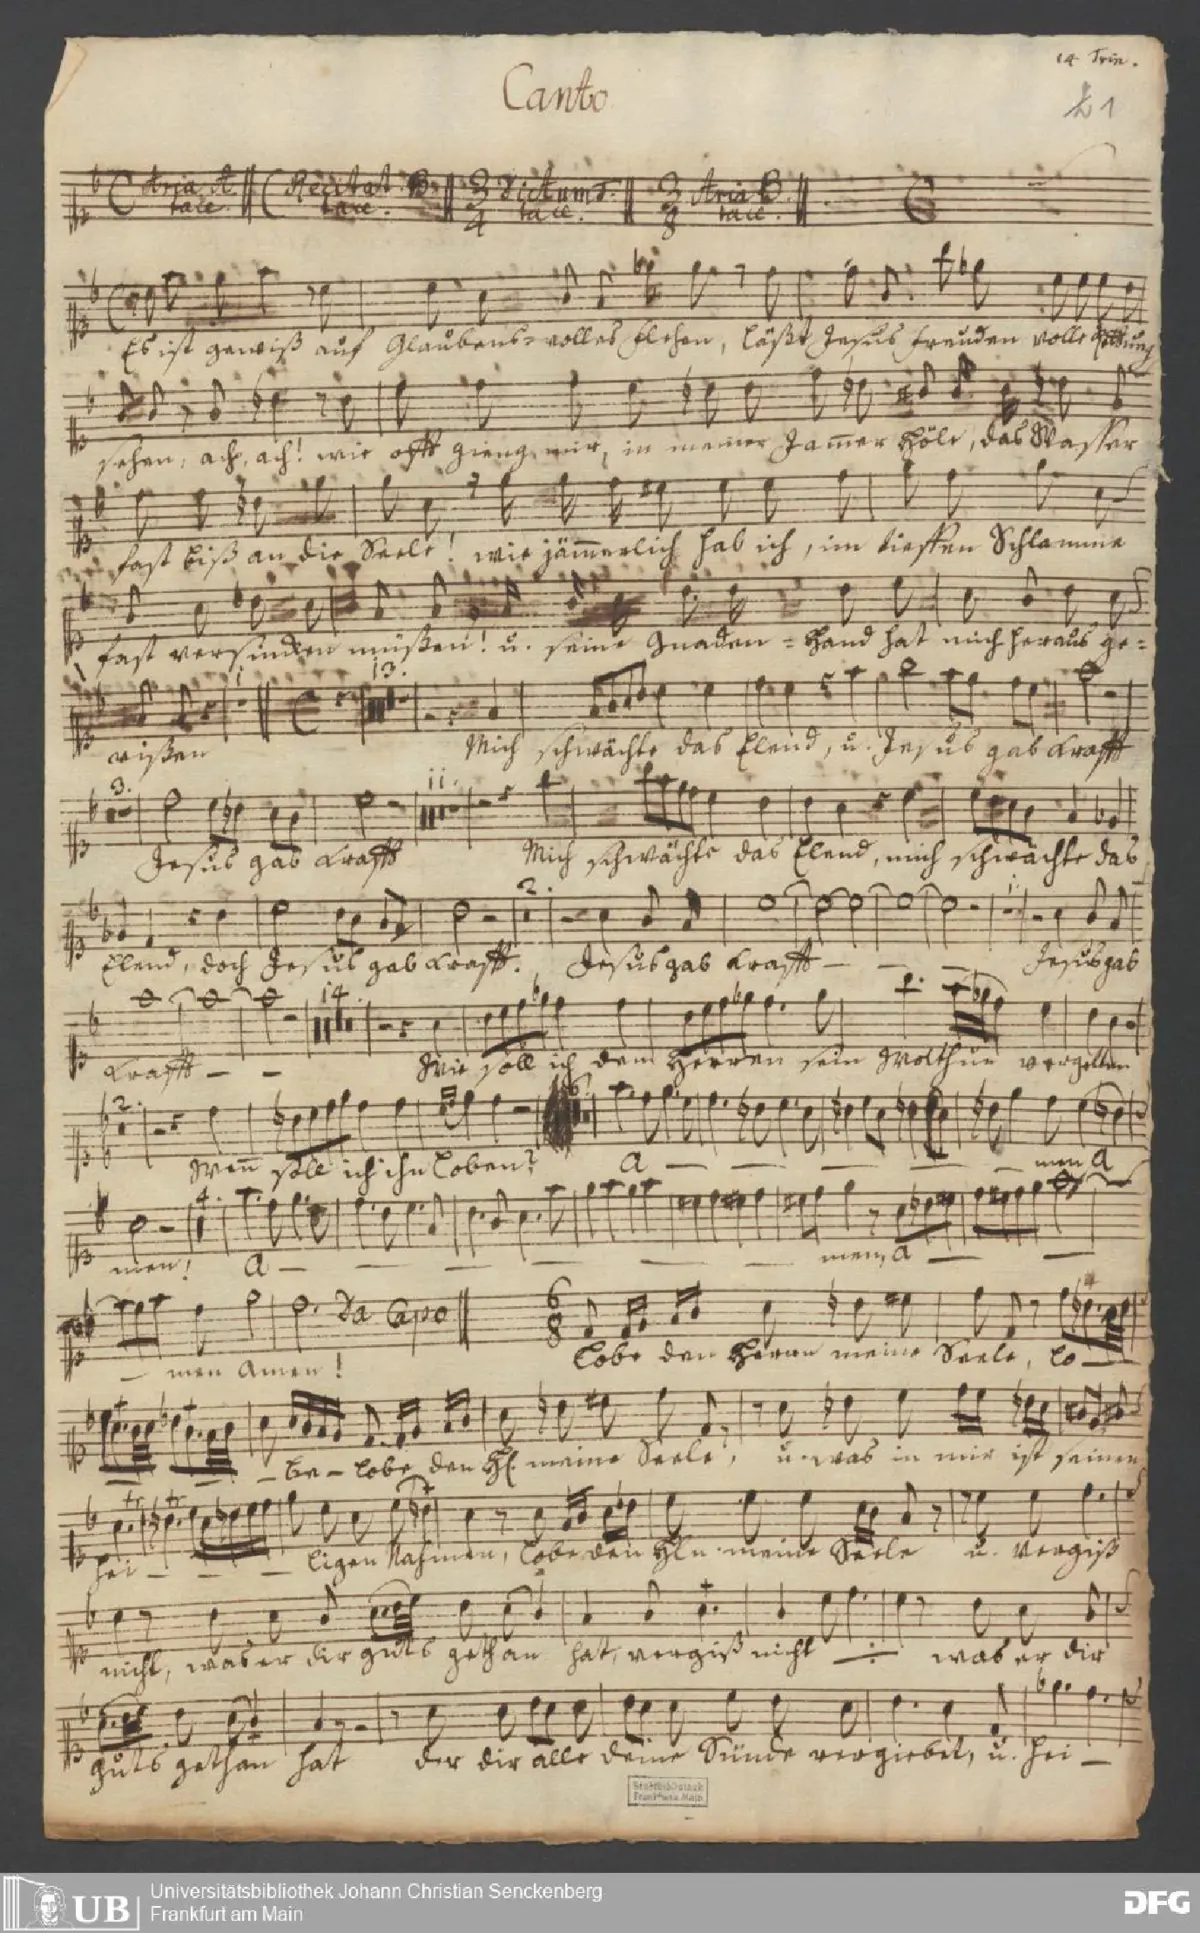 14 Trin.
Canto
21
Aria A tace. Recitat. B. tace. 3 4 Dictum T. tace. 3 8 Aria B. tace.
Es ist gewiß auf Glaubens-volles flehen, läßt Jesus freuden volle
sehen, ach, ach! wie offt gieng mir, in meiner Jamer Höle, das Wasser
fast biß an die Seele! wie jämerlich hab ich, im tieffen Schlamme
fast versincken müßen! u. seine Gnaden-Hand hat mich heraus ge-
1 1 13.
rißen Mich schwächte das Elend, u. Jesus gab Krafft
3. 11.
Jesus gab Krafft Mich schwächte das Elend, mich schwächte das
2. 1.
Elend, doch Jesus gab Krafft. Jesus gab Krafft Jesus gab
14.
Krafft Wie soll ich dem Herren sein Wolthun vergelten
2.
Wen soll ich ihn loben? A men A
4.
men! A men, A
Da Capo 6 8
men Amen! Lobe den Herrn meine Seele, lo
be lobe den H. meine Seele, u. was in mir ist seinen
tr tr
hei ligen Nahmen, lobe den Hln. meine Seele u. vergiß
nicht, was er dir guts gethan hat, vergiß nicht was er dir
guts gethan hat der dir alle deine Sünde vergiebet, u. hei
Stadtbibliothek
Frankfurt a. Main
UB Universitätsbibliothek Johann Christian Senckenberg
Frankfurt am Main
DFG